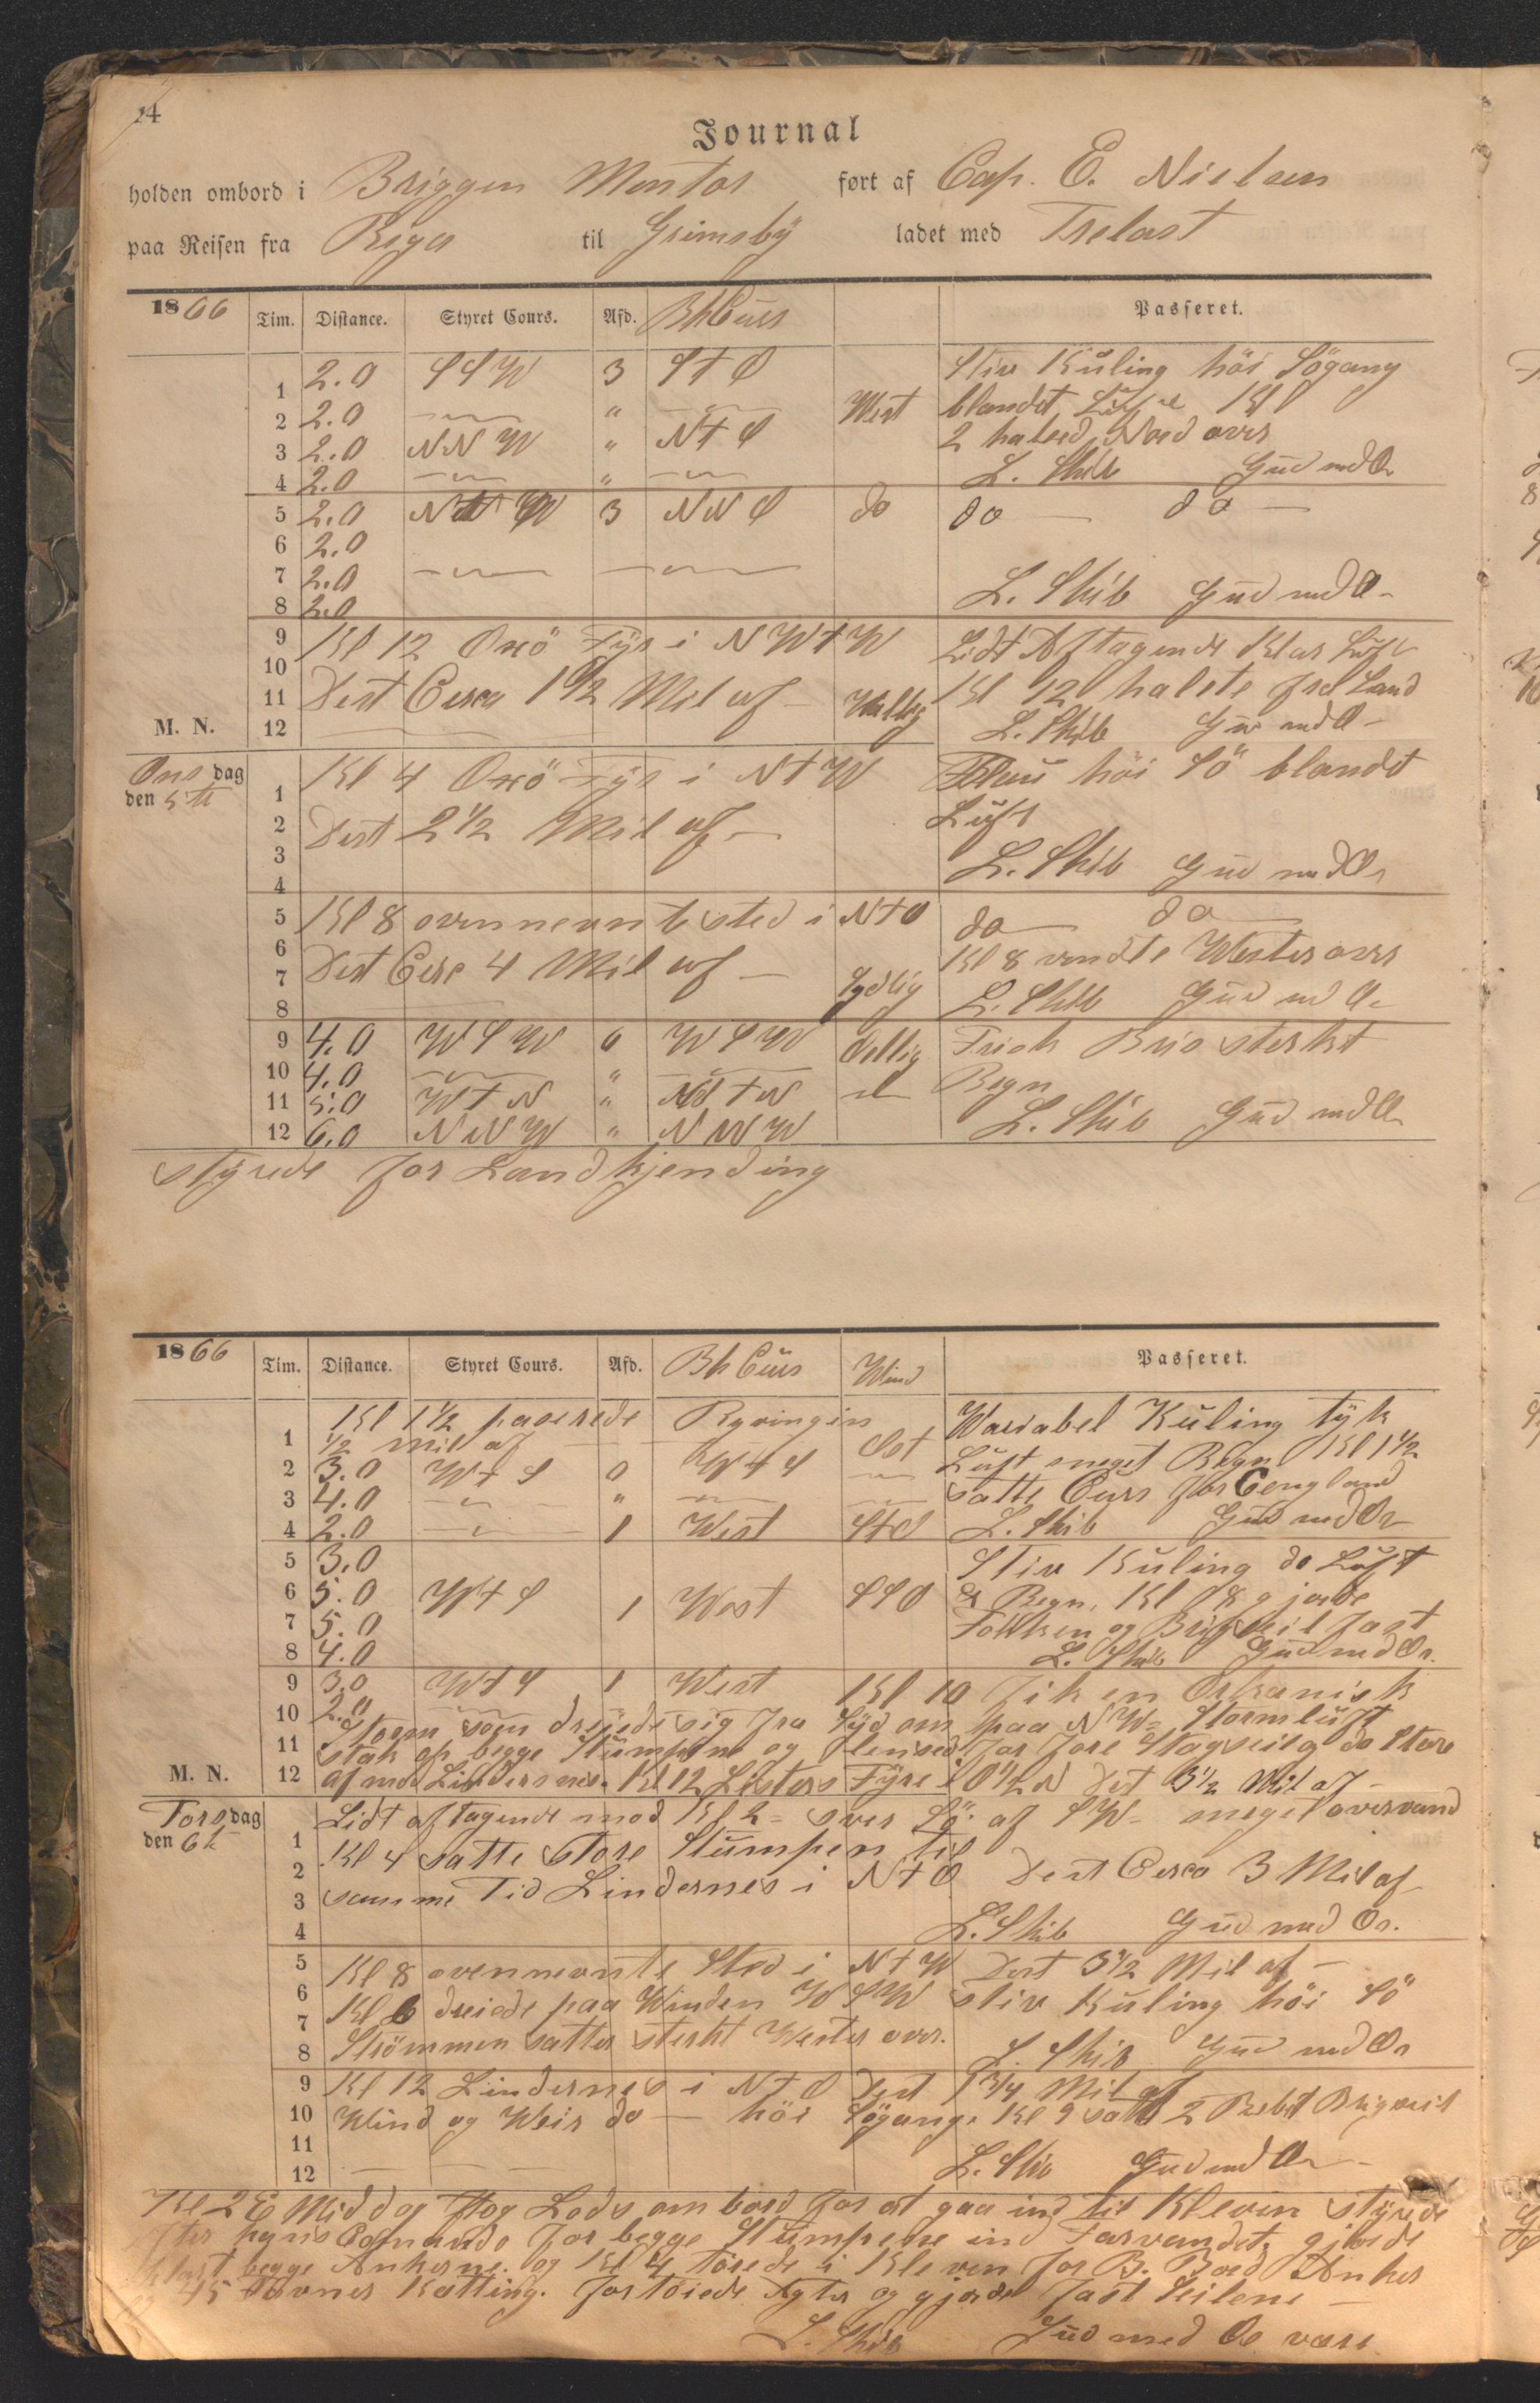 14
Journal
holden ombord i Briggen Mentor ført af Cap. E. Nielsen
paa Reisen fra Riga til Grimsby ladet med Trelast
1866 Tim. Distance. Styret Cours. Afd. Bh Cuurs Passeret.
1 2.0 SSW 3 StO Stiv Kuling höi Sögang
2 2.0 " West blandet Luft Kl
3 2.0 NNW " NtO 2 halsed Nord over
4 2.0 " L. Skib Gud med Os
5 2.0 3 NNO do do do
6 2.0
7 2.0
8 2.0 L. Skib Gud med Os
9 Kl 12 Oxö Fyr i NWtW Lidt Aftagende Klar Luft
10
11 Dest Cirka 1 1/2 Mil af Kl 12 halste fra Land
M. N. 12 L. Skib Gud med Os
Onsdag
den 5te
1 Kl 4 Oxö Fyr i NtW Flau höi Sö blandet
2 Dest 2 1/2 Mil af Luft
3
4 L. Skib Gud med Os
5 Kl 8 ovennevnte sted i NtO do do
6 Kl 8 vendte Wester over
7 Dest Circ 4 Mil af Sydlig
8 L. Skib Gud med Os
9 4.0 WSW 0 WSW Ostlig Frisk Bris sterkt
10 4.0 " Regn
11 5.0 WtN " WtN
12 6.0 NNW " NNW L. Skib Gud med Os
styrede for Landkjending
1866 Tim. Distance. Styret Cours. Afd. Bh Cuurs Wind Passeret.
Kl 1 1/2 paserede Ryvingen Wariabel Kuling tyk
1 1/2 mil af Ost
2 3.0 WtS 0 WtS Luft meget Regn Kl 1 1/2
3 4.0 " satte Cuurs for Eengland
4 2.0 1 West StO L. Skib Gud med Os
5 3.0 Stiv Kuling do Luft
6 5.0 WtS 1 West SSO & Regn, Kl 8 gjorde
7 5.0 Fokken og Briseil fast
8 4.0 L. Skib Gud med Os.
9 3.0 WtS 1 West Kl 10 Fik en Orkanisk
10 2.0 Storm som dreiede sig fra Syd om paa NW Stormluft
11 stak op begge Stumpene og lensed for fore Stagseil og do Store
M. N. 12 af mod Lindersnes. Kl 12 Listers Fyre i O 1/2 N Dest 3 1/2 Mil af
Torsdag
den 6te
Lidt aftagende mod Kl 2 sver Sö af SW meget overvand
1
2 Kl 4 satte Store Stumpen til
3 samme Tid Lindernes i NtO Dest Circa 3 Mil af
4 L. Skib Gud med Os.
5 Kl 8 ovennevnte Sted i NtW Dest 3 1/2 Mil af
6
7 Kl 6 dreiede paa Winden WSW stiv Kuling höi Sö
8 Strömmen satter sterkt Wester over.
L. Skib Gud med Os
9 Kl 12 Lindernes i NtO Dest 1 3/4 Mil af
10 Wind og Weir do höi Sögang. Kl 9 satte 2 Rebet Brigseil
11
12 L. Skib Gud med Os
Kl 2 E Middag tog Lods ombord for at gaa ind til Kleven styrede
efter hans Comando for begge Stumpene ind Farvandet, gjorde
klart begge Ankerne. og Kl 4 törede i Kleven for B. Bord Anker
45 Favner Ketting. fortöiede Agter og gjorde fast Seilene
L. Skib Gud med Os vere